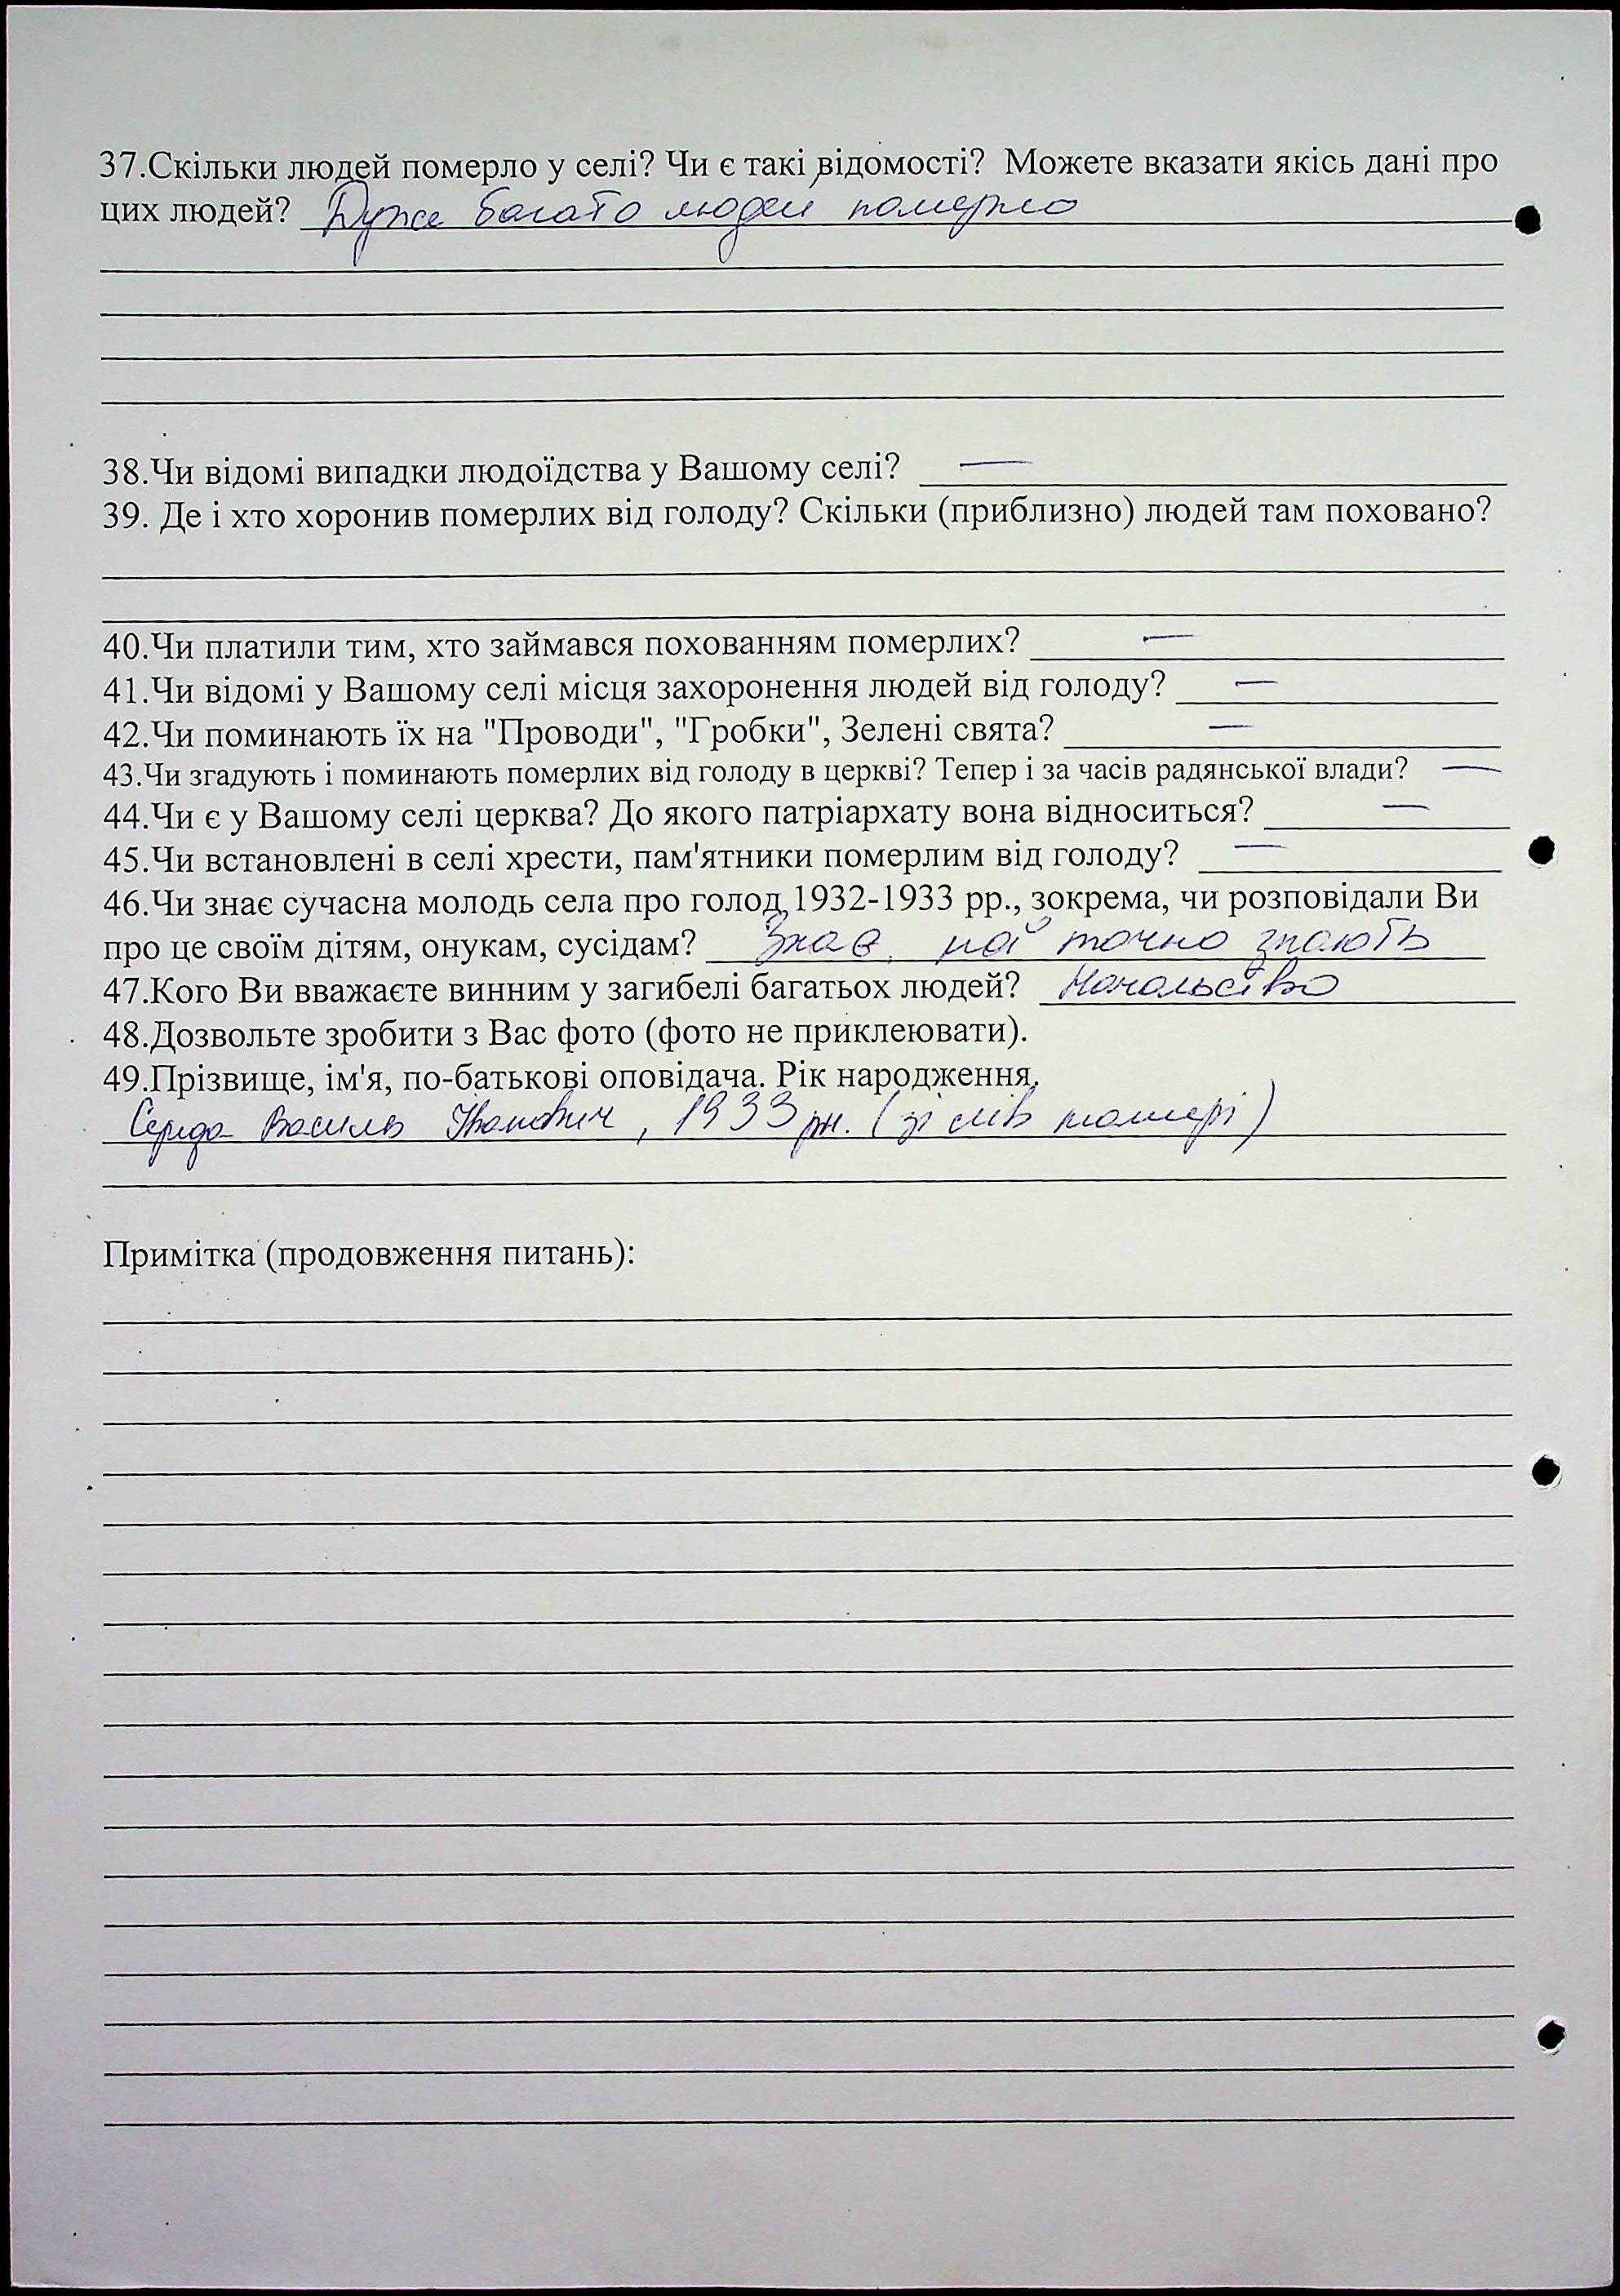 37.Скільки людей померло у селі? Чи є такі відомості? Можете вказати якісь дані про
цих людей? Дуже багато людей померло
38.Чи відомі випадки людоїдства у Вашому селі? —
39. Де і хто хоронив померлих від голоду? Скільки (приблизно) людей там поховано?
40.Чи платили тим, хто займався похованням померлих? —
41.Чи відомі у Вашому селі місця захоронення людей від голоду? —
42.Чи поминають їх на "Проводи", "Гробки", Зелені свята? —
43.Чи згадують і поминають померлих від голоду в церкві? Тепер і за часів радянської влади? —
44.Чи є у Вашому селі церква? До якого патріархату вона відноситься? —
45.Чи встановлені в селі хрести, пам'ятники померлим від голоду? —
46.Чи знає сучасна молодь села про голод 1932-1933 рр., зокрема, чи розповідали Ви
про це своїм дітям, онукам, сусідам? Знає, мої точно знають
47.Кого Ви вважаєте винним у загибелі багатьох людей? Начальство
48.Дозвольте зробити з Вас фото (фото не приклеювати).
49.Прізвище, ім'я, по-батькові оповідача. Рік народження.
Середа Василь Іванович, 1933 рн. (зі слів матері)
Примітка (продовження питань):